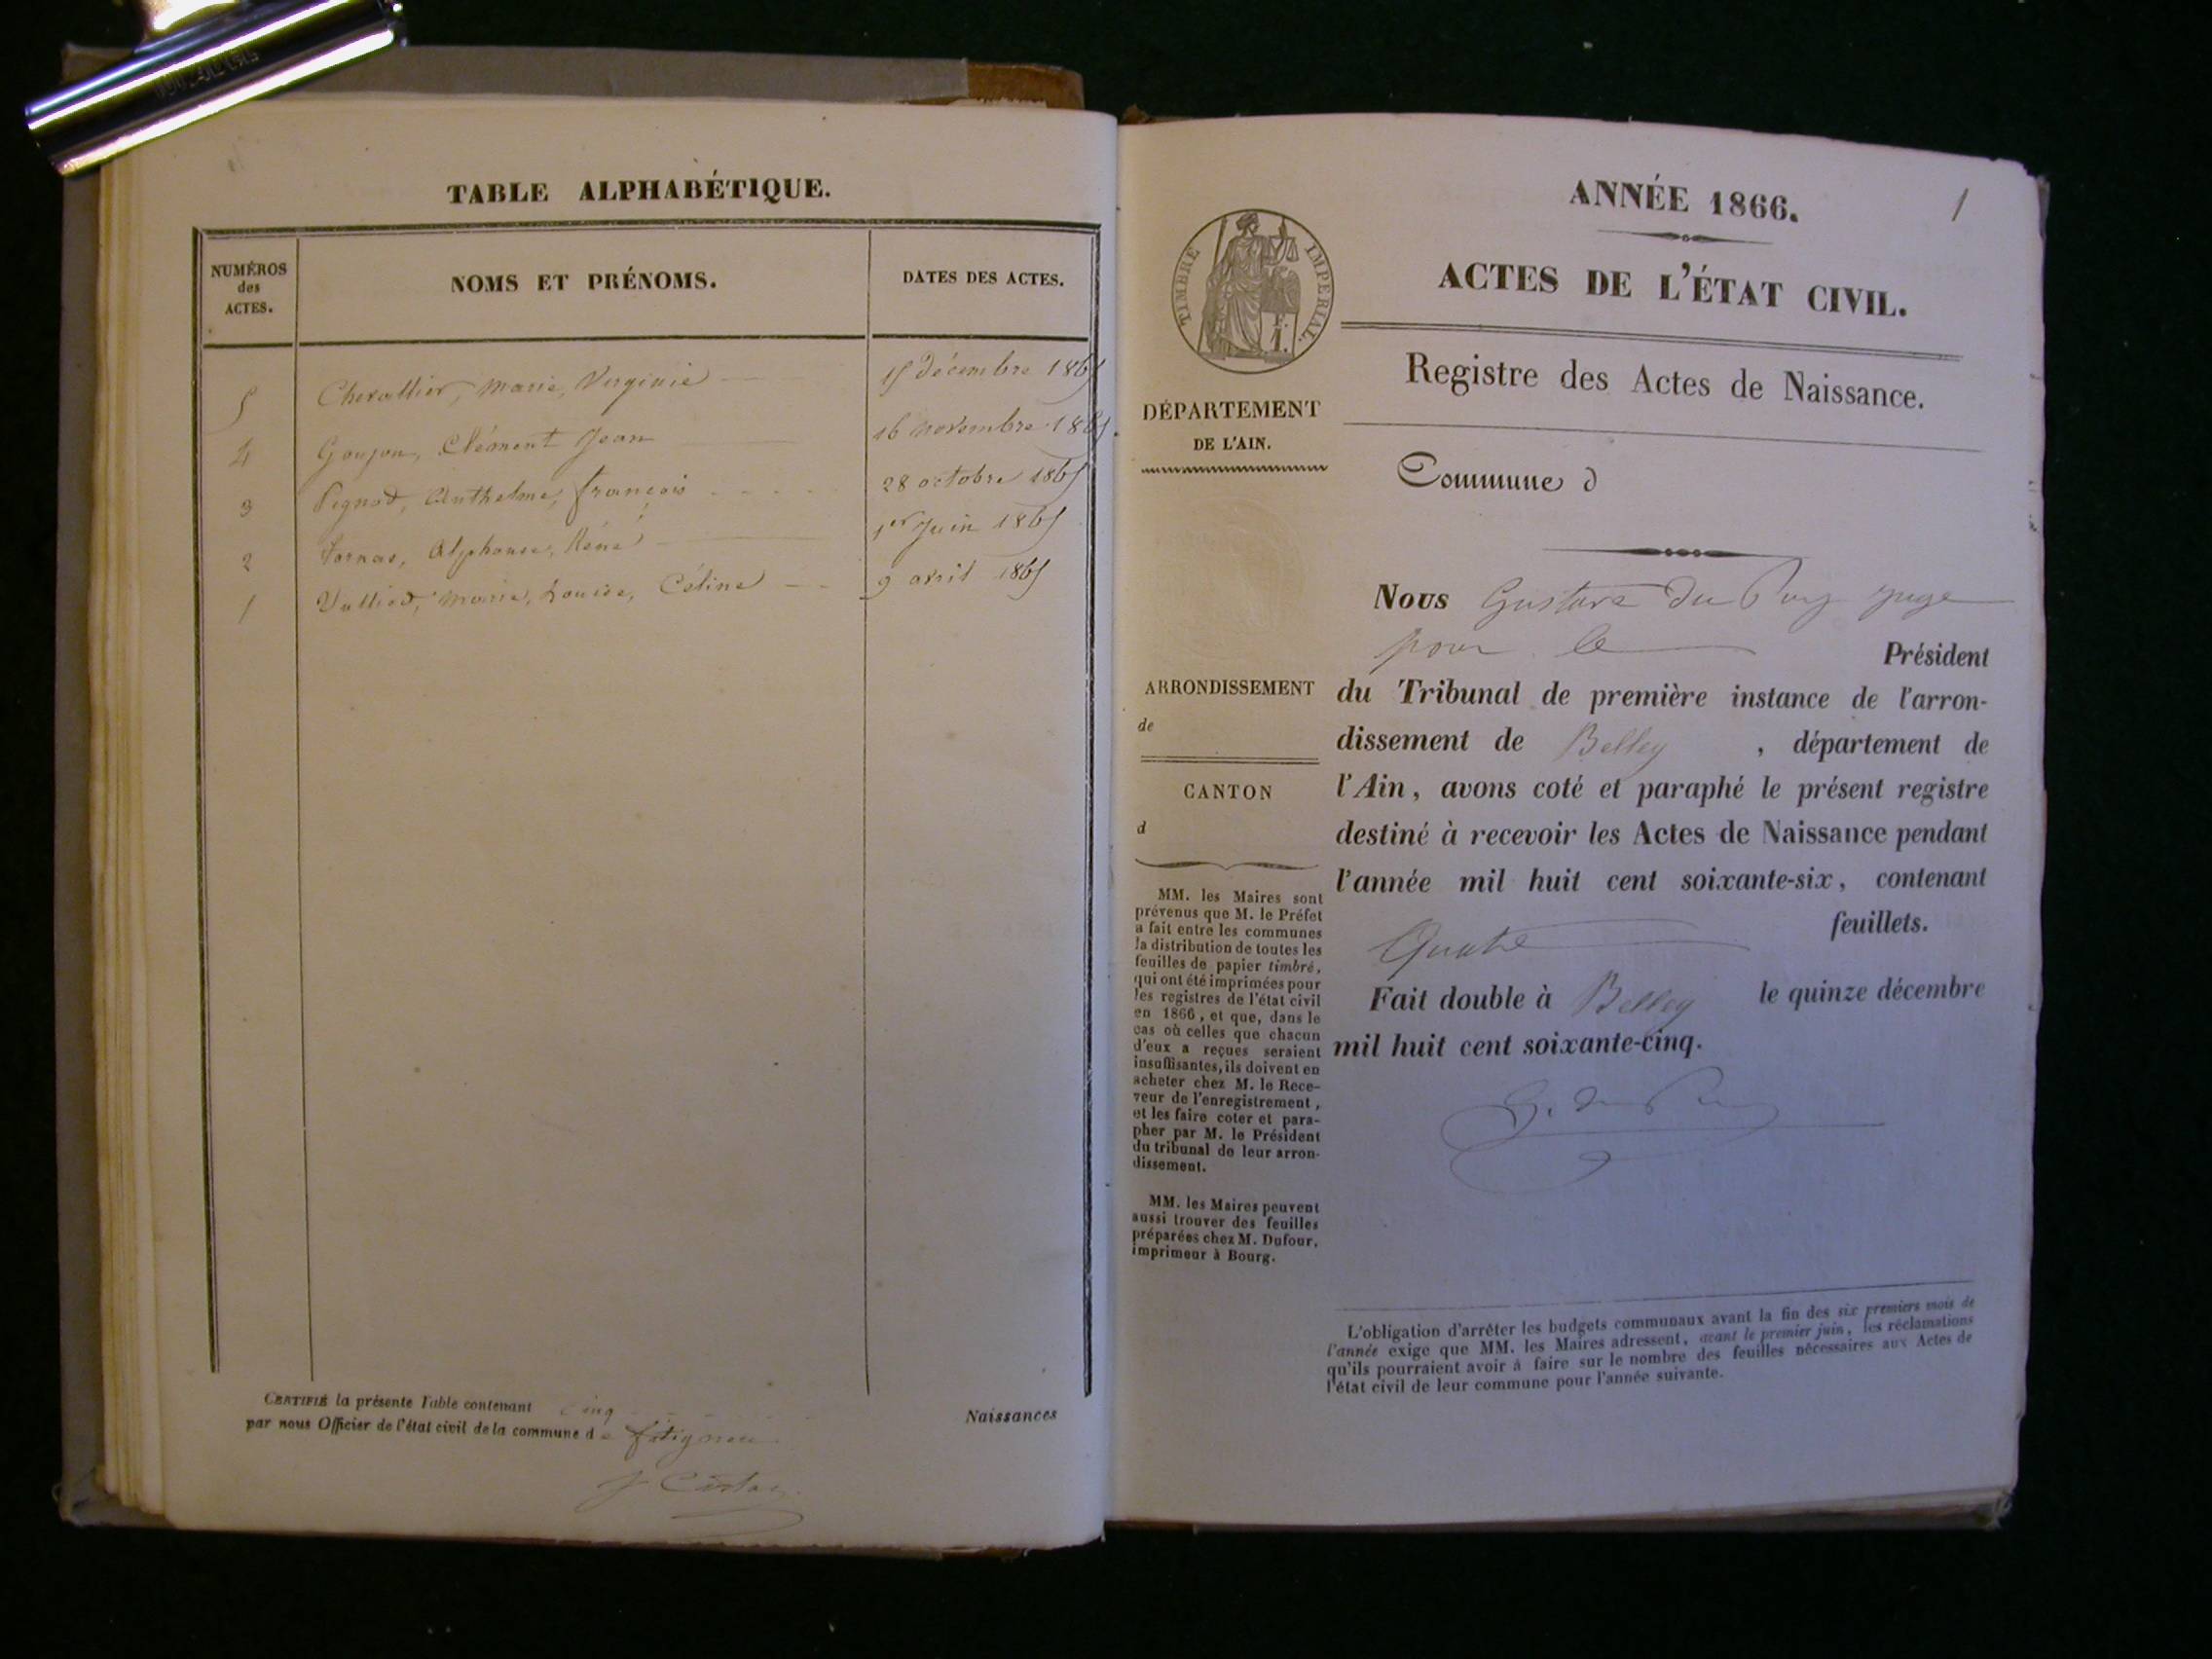 TABLE ALPHABÉTIQUE.
NUMÉROS
des
ACTES.
NOMS ET PRÉNOMS.
DATES DES ACTES.
5 Chevallier, Marie, Virginie 15 décembre 1865
4 Goujon, Clément Jean 16 novembre 1865.
3 Pognod, Anthelme, françois 28 octobre 1865
2 Alphonse, Réné 1er Juin 1865
1 Marie, Louise, Céline 9 avril 1865
CERTIFIÉ la présente Table contenant cinq Naissances
par nous Officier de l'état civil de la commune de
1
ANNÉE 1866.
ACTES DE L'ÉTAT CIVIL.
Registre des Actes de Naissance.
TIMBRE IMPERIAL.
F.
1.
DÉPARTEMENT
DE L'AIN.
Commune d
Nous Gustave du Puy juge
pour le Président
ARRONDISSEMENT
de
CANTON
d
du Tribunal de première instance de l'arron-
dissement de Belley , département de
l'Ain, avons coté et paraphé le présent registre
destiné à recevoir les Actes de Naissance pendant
l'année mil huit cent soixante-six, contenant
Quatre feuillets.
Fait double à Belley le quinze décembre
mil huit cent soixante-cinq.
MM. les Maires sont
prévenus que M. le Préfet
a fait entre les communes
la distribution de toutes les
feuilles de papier timbré,
qui ont été imprimées pour
les registres de l'état civil
en 1866, et que, dans le
cas où celles que chacun
d'eux a reçues seraient
insuffisantes, ils doivent en
acheter chez M. le Rece-
veur de l'enregistrement,
et les faire coter et para-
pher par M. le Président
du tribunal de leur arron-
dissement.
MM. les Maires peuvent
aussi trouver des feuilles
préparées chez M. Dufour,
imprimeur à Bourg.
L'obligation d'arrêter les budgets communaux avant la fin des six premiers mois de
l'année exige que MM. les Maires adressent, avant le premier juin, les réclamations
qu'ils pourraient avoir à faire sur le nombre des feuilles nécessaires aux Actes de
l'état civil de leur commune pour l'année suivante.